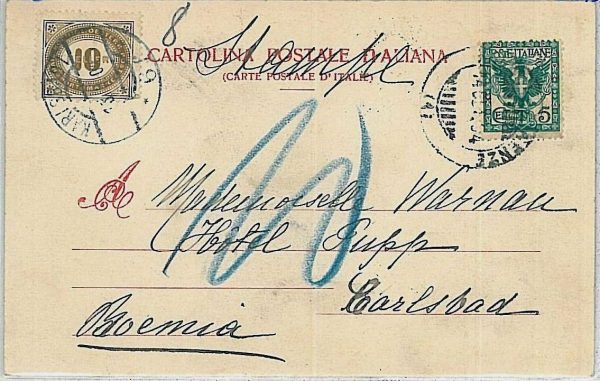 8 Stampe
CARTOLINA POSTALE ITALIANA
(CARTE POSTALE D'ITALIE)
10
POSTE ITALIANE
5
A
Mademoiselle Warnau
Hôtel Pupp
Carlsbad
Boemia
10